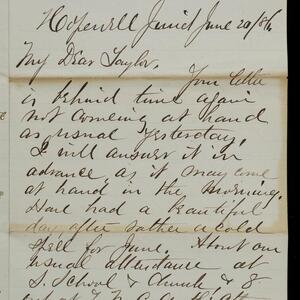 Hopewell Junct June 20/86
My Dear Taylor,
Your letter
is behind time again
not comeing at hand
as usual yesterday,
I will answer it in
advance as it may come
at hand in the morning.
Have had a beautiful
day after rather a cold
spell for June. About our
usual attendance at
S. School & Church & 8